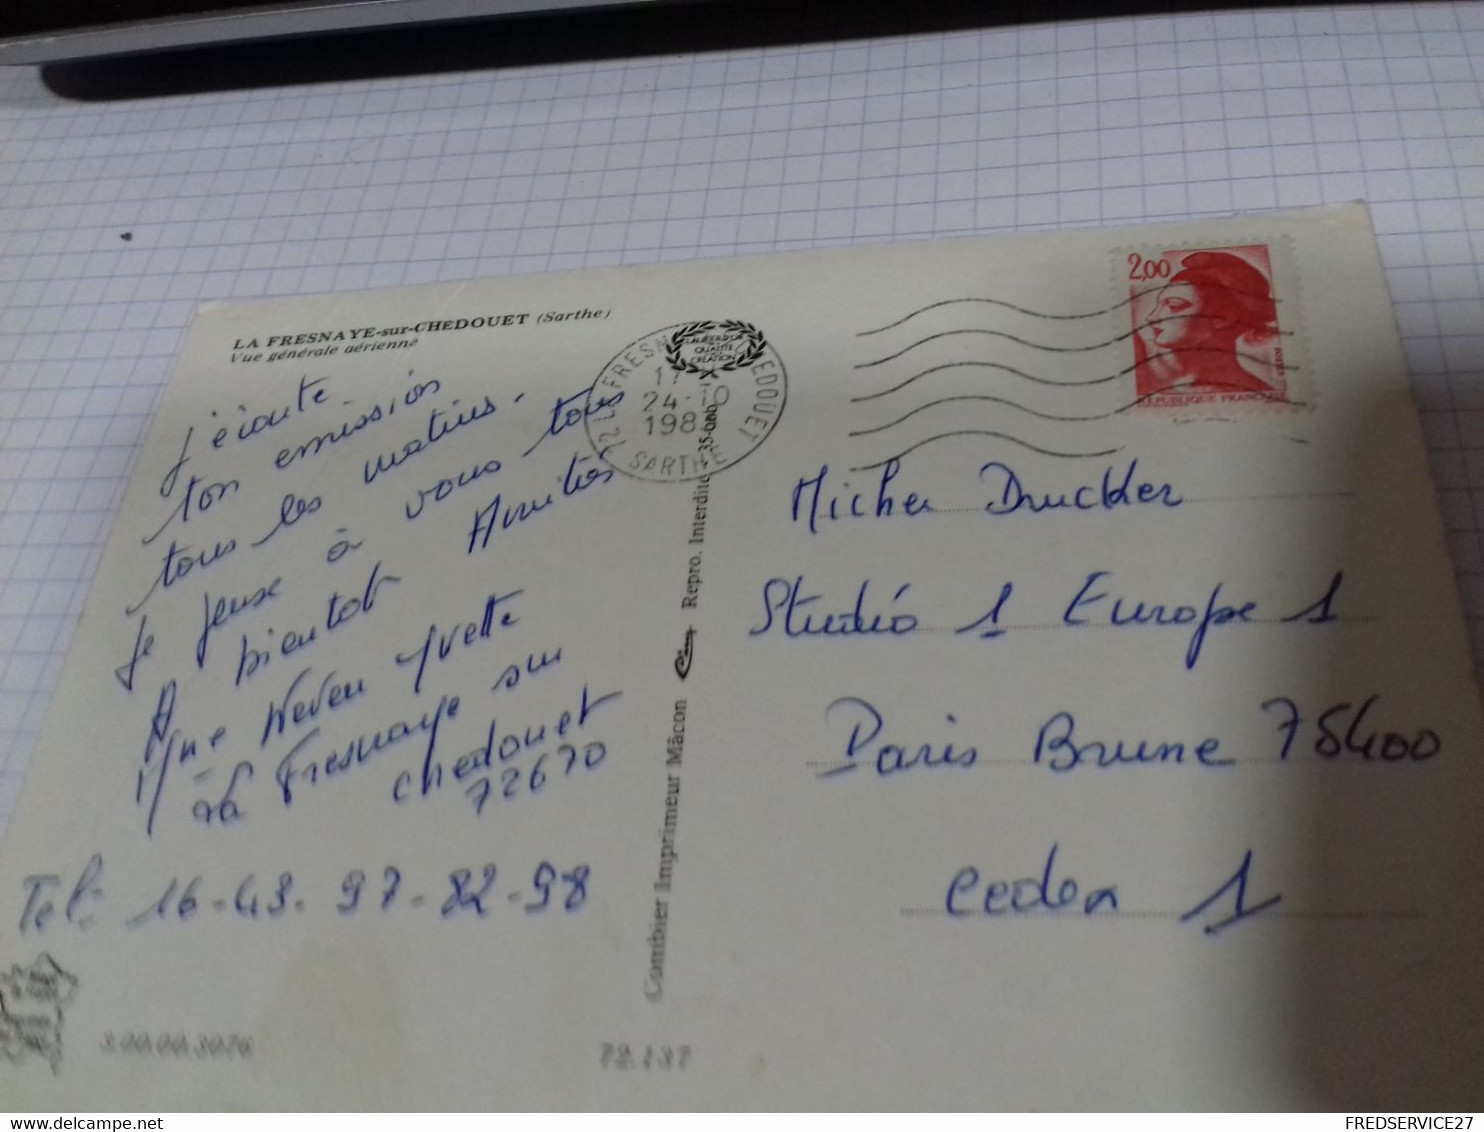 LA FRESNAYE-sur-CHEDOUET (Sarthe)
Vue générale aérienne
j'écoute
ton emission
tous les matins.
je pense à vous tous
A bientot Amitiés
Mme Yvette
La Fresnaye sur
chedouet
72670
Tel: 16-43-97-82-98
72 LA FRESN EDOUET
LAURIER D'OR
QUALITÉ
CRÉATION
17
24-10
198
SARTHE
Combier Imprimeur Mâcon
Cim
Repro. Interdite
2,00
REPUBLIQUE FRANÇAISE
Michel Drucker
Studió 1 Europe 1
Paris Brune 75400
cedex 1
72.137
FREDSERVICE27